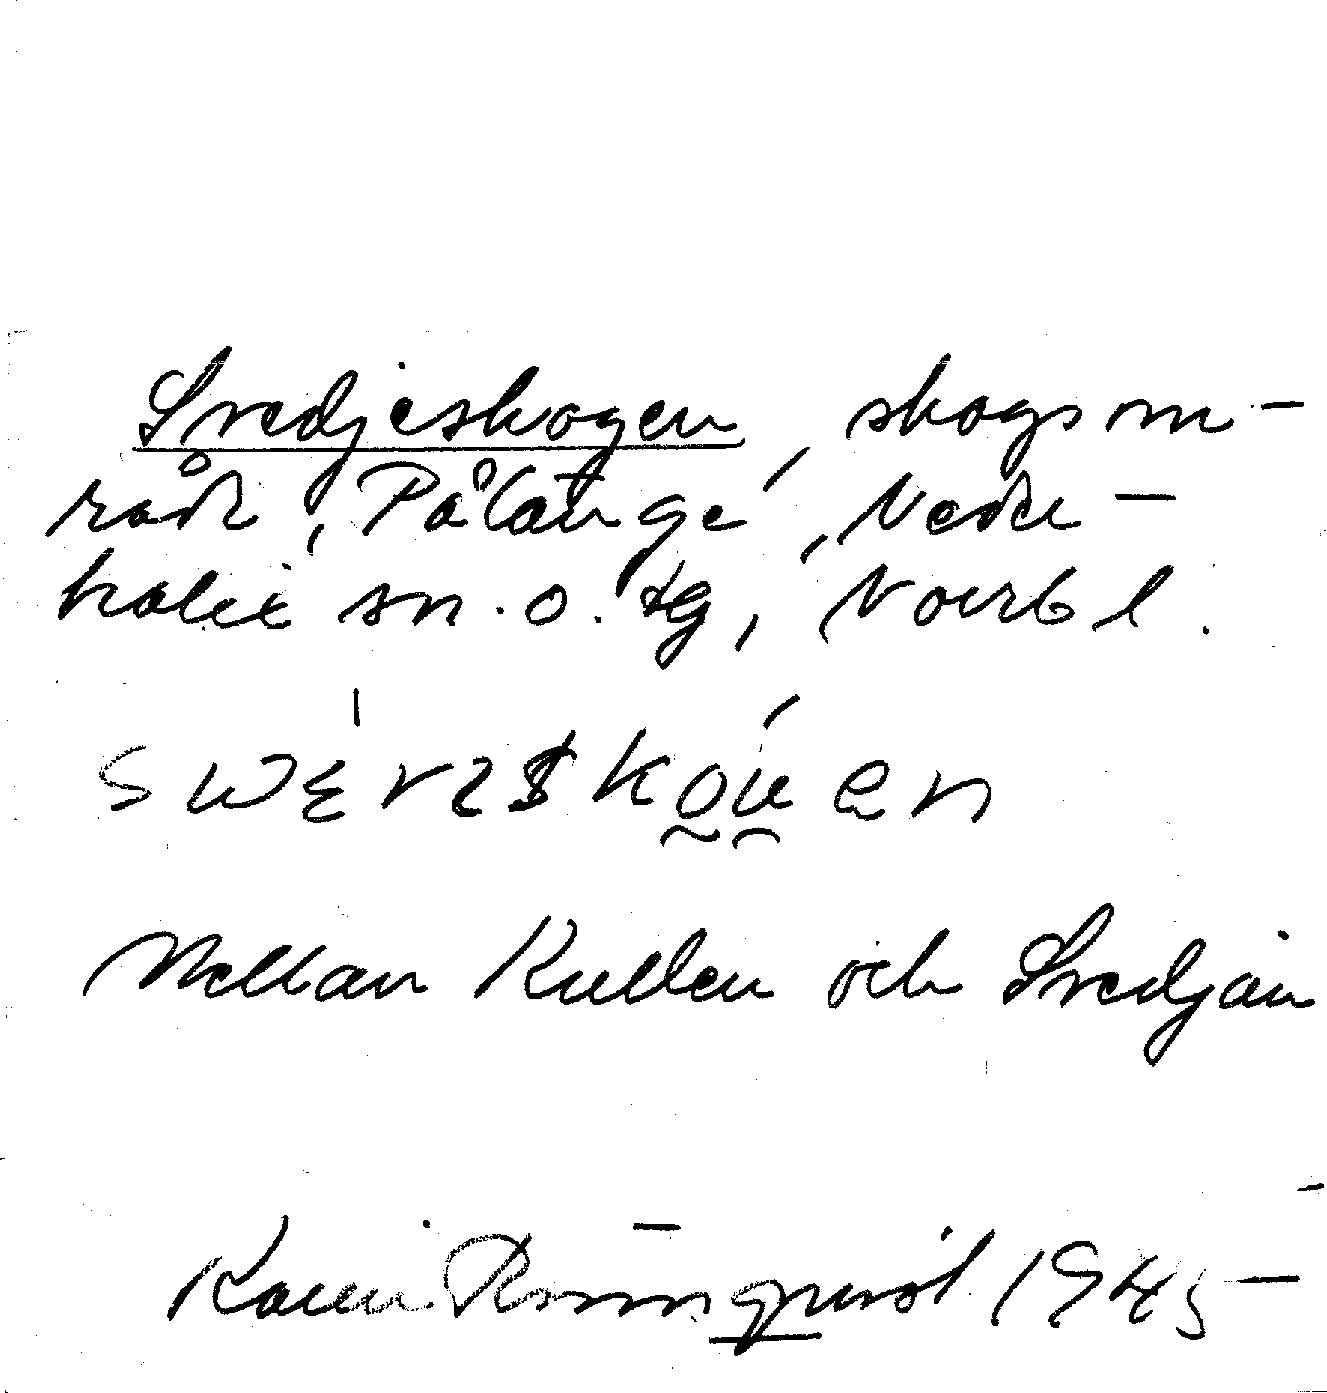 Svedjeskogen, skogsom-
råde, Pålänge, Neder-
kalix sn. o. tg, Norrb l.
Mellan Kullen och Svedjan
Karin Rönnqvist 1945